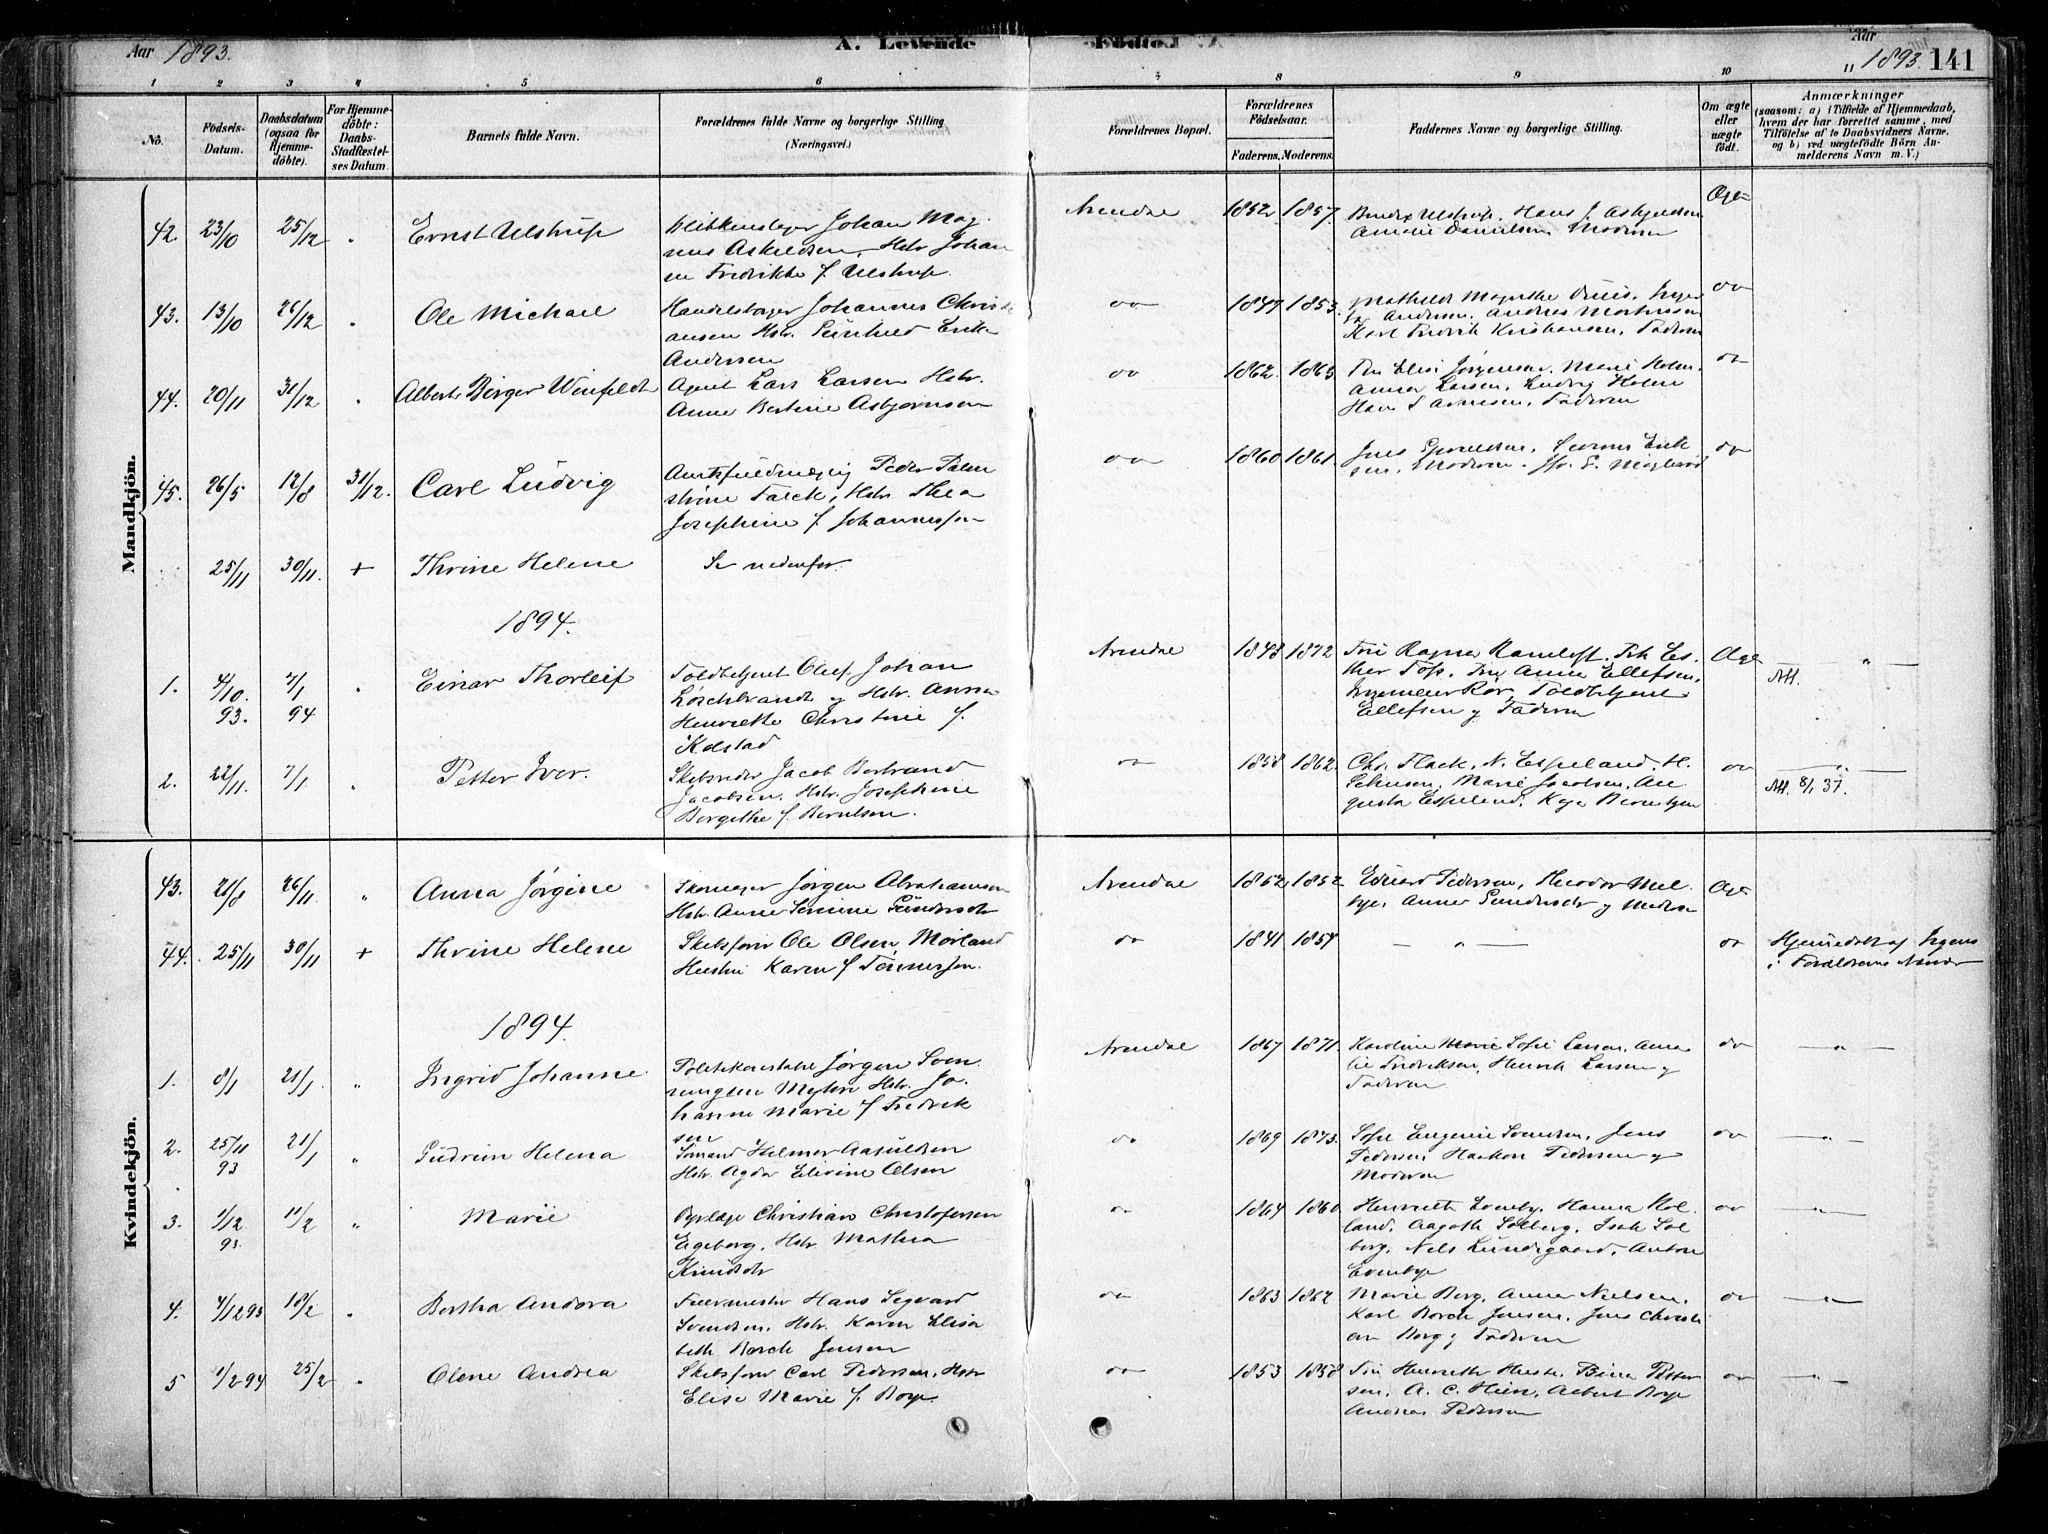 Aar 1893.
A. Levende
Fødte.
Aar
1893. 141
1 2 3 4 5 6 7 8 9 10 11
No.
Fødsels-Datum.
Daabsdatum (ogsaa for Hjemmedöbte).
For Hjemmedöbte: Daabs-Stadfæstelses Datum.
Barnets fulde Navn.
Forældrenes fulde Navne og borgerlige Stilling.
(Næringsvei.)
Forældrenes Bopæl.
Forældrenes Födselsaar.
Faderens. Moderens.
Faddernes Navne og borgerlige Stilling.
Om ægte eller uægte födt.
Anmærkninger
(saasom: a) i Tilfælde af Hjemmedaab, hvem der har forrettet samme, med Tilföielse af to Daabsvidners Navne. og b) ved uægtefödte Börn Anmelderens Navn m. V.)
Mandkjön.
42. 23/10 25/12 " Ernst Ulstrup
Blikkenslager Johan Mag
nus Askildsen, Hstr Johan
ne Fredrikke f. Ulstrup.
Arendal 1852 1857.
Bendix Ulstrup, Hans J. Asbjørnsen
Amalie Danielsen, Moderen
Ægte
43. 13/10 26/12 " Ole Michael
Handelsborger Johannes Christi
ansen Hstr. Gunhild
Andersen
do 1847 1853.
Andersen, Andreas Mortensen
Karl Fredrik Kristiansen, Faderen
do
44. 20/11 31/12 " Albert Birger Winfeldt
Agent Lars Larsen Hstr.
Anne Bertine Asbjørnsen
do 1862. 1863
Elise Jørgensen, Marie Holm,
Anna Larsen, Ludvig Holm
Hans Faderen
do
45. 26/5 12/8 31/12. Carl Ludvig
Amtsfuldmægtig Peder Palm
strøm Falck, Hstr. Thea
Josephine f. Johannessen
do 1860 1861.
Jens Moderen
do
25/11 30/11. + Thrine Helene Se nedenfor
1894.
1. 4/10 93. 7/1 94 " Einar Thorleif
Toldbetjent Oluf Johan
Løschbrandt og Hstr. Anna
Henriette Christine f.
Kolstad
Arendal 1843 1872
Anne Ellefsen,
Toldbetjent
Ellefsen og Faderen
Ægte " Att.
2. 22/11. 7/1 " Petter Iver.
Skibsreder Jacob Bertrand
Jacobsen, Hstr. Josephine
Bergithe f. Berntsen.
do 1858 1862.
Chr. Flack, N. Espeland, H.
Marie Jacobsen, Au
gusta Espeland, Kaja Berntsen
do " Att. 8/1 37.
Kvindekjön.
43. 21/8 26/11 " Anna Jørgine
Skomager Jørgen Abrahamsen
Hstr. Anne Gundersdr
Arendal 1852 1852
Edvard Pedersen, Theodor Mel
bye, Anne Gundersdr og Moderen
Ægte
44. 25/11 30/11 + Thrine Helene
Skibsfører Ole Olsen Mørland
Hustru Karen f. Tønnessen.
do 1841 1854 — " — do
Hjemmedøbt af Ingens
i Forældrenes Nærvær
1894.
1. 8/1 21/1 " Ingrid Johanne.
Politikonstabel Jørgen
Hstr. Jo
hanne Marie f. Fredrik
sen
Arendal 1867 1871.
Karoline Marie Sofie Larsen, Ama
lie Fredriksen, Henrik Larsen og
Faderen
do "
2. 25/11 93 21/1 " Gudrun Helena
Sømand Hilmar Aasuldsen
Hstr Agda Elevine Olsen
do 1869 1873.
Sofie Eugenie Svendsen, Jens
Pedersen, Haakon Pedersen og
Moderen
do "
3. 1/12 93 11/2 " Marie
Byslage Christian Christofersen
Egeberg, Hstr Mathea
Knudsdr
do 1864 1860
Henriette Evenby, Hanna Hol
land, Aagoth Solberg, Isak Sol
berg, Nels Lundegaard, Anton
Evenbye
do "
4. 4/12 93 18/2 " Bertha Andora
Hans Segvard
Svendsen, Hstr. Karen Elisa
beth Borch Jensen
do 1863 1862
Marie Berg, Anna Nielsen,
Karl Borch Jensen, Jens Christi
an Borg og Faderen
do "
5 1/2 94 25/2 " Olene Andrea
Skibsfører Carl Pedersen, Hstr
Elise Marie f. Boye
do 1853 1858
Petter
sen, A. C. Albert Boye
Andreas Pedersen
do "